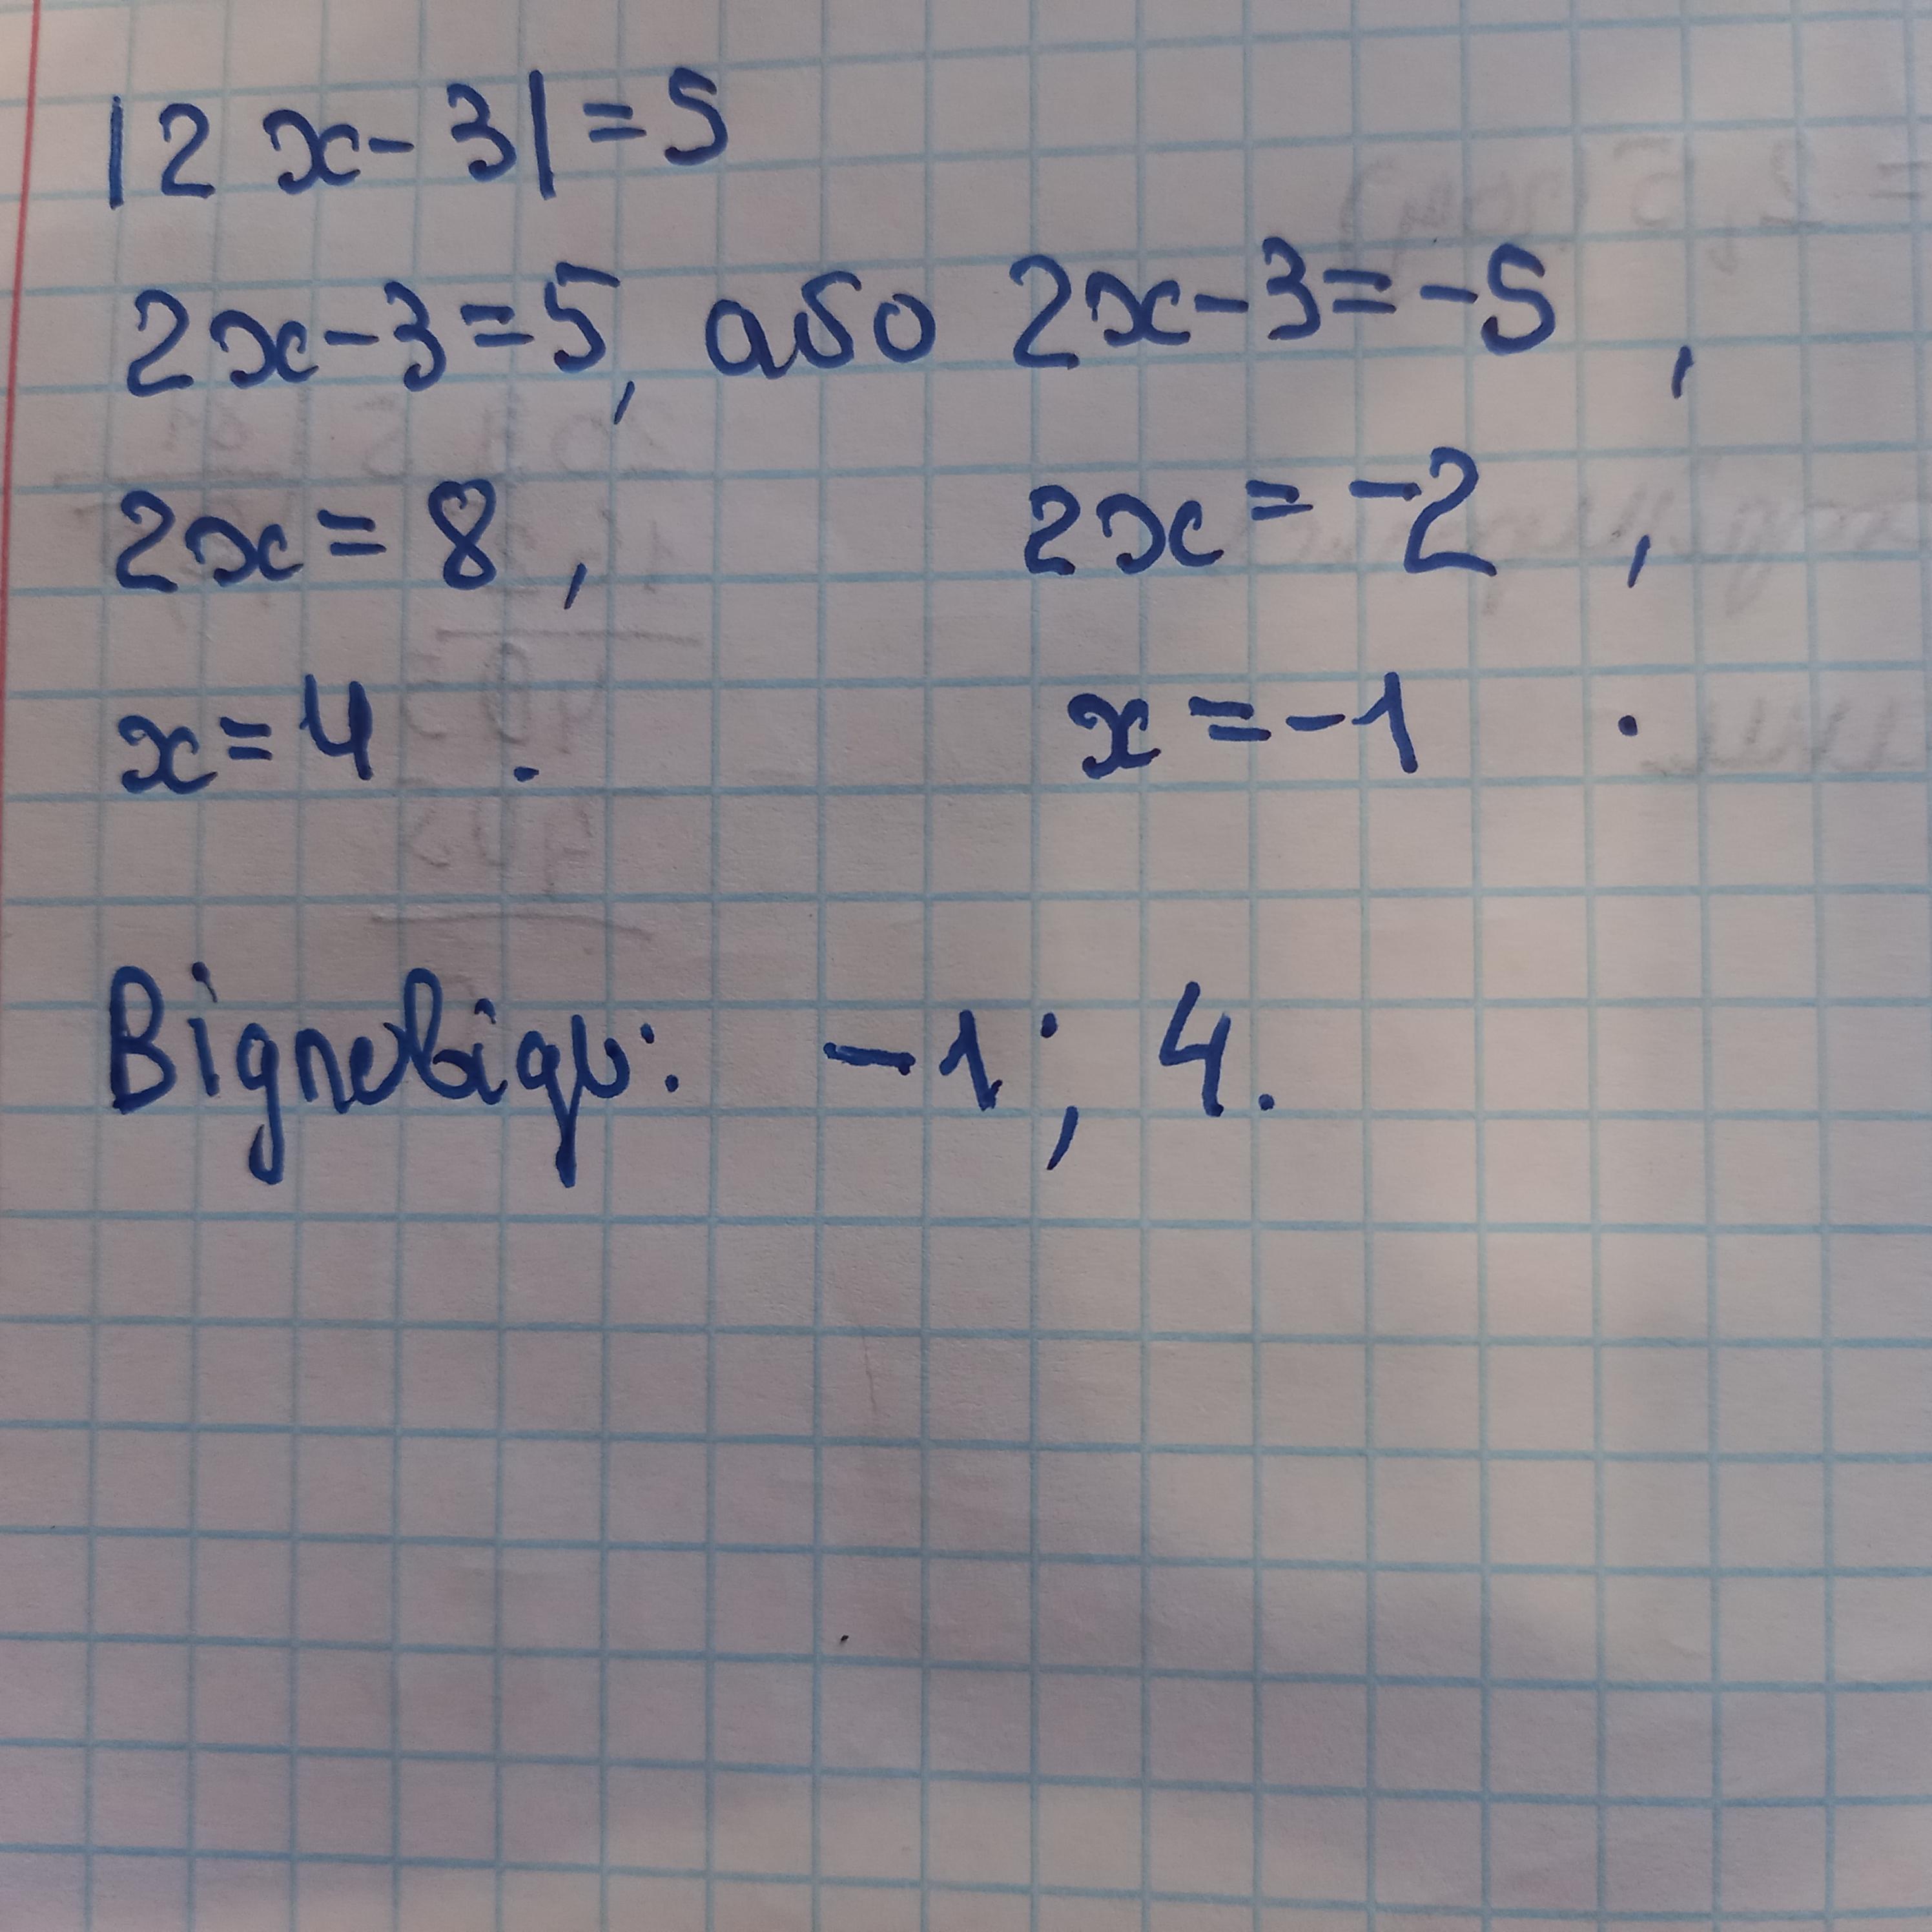 |2x-3|=5
2x-3=5, або 2x-3=-5,
2x=8, 2x=-2,
x=4. x=-1.
Відповідь: -1; 4.